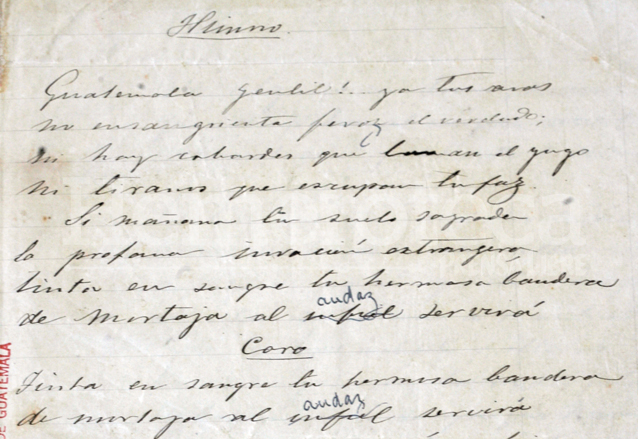 Himno.
Guatemala gentil! ya tus aras
no ensangrienta feroz el verdudo;
ni hay cobardes que laman el yugo
ni tiranos que escupan tu faz
Si mañana tu suelo sagrado
lo profana invación estrangera
tinta en sangre tu hermosa bandera
audaz
de mortaja al servirá
Coro
Tinta en sangre tu hermosa bandera
audaz
de mortaja al servirá
DE GUATEMALA